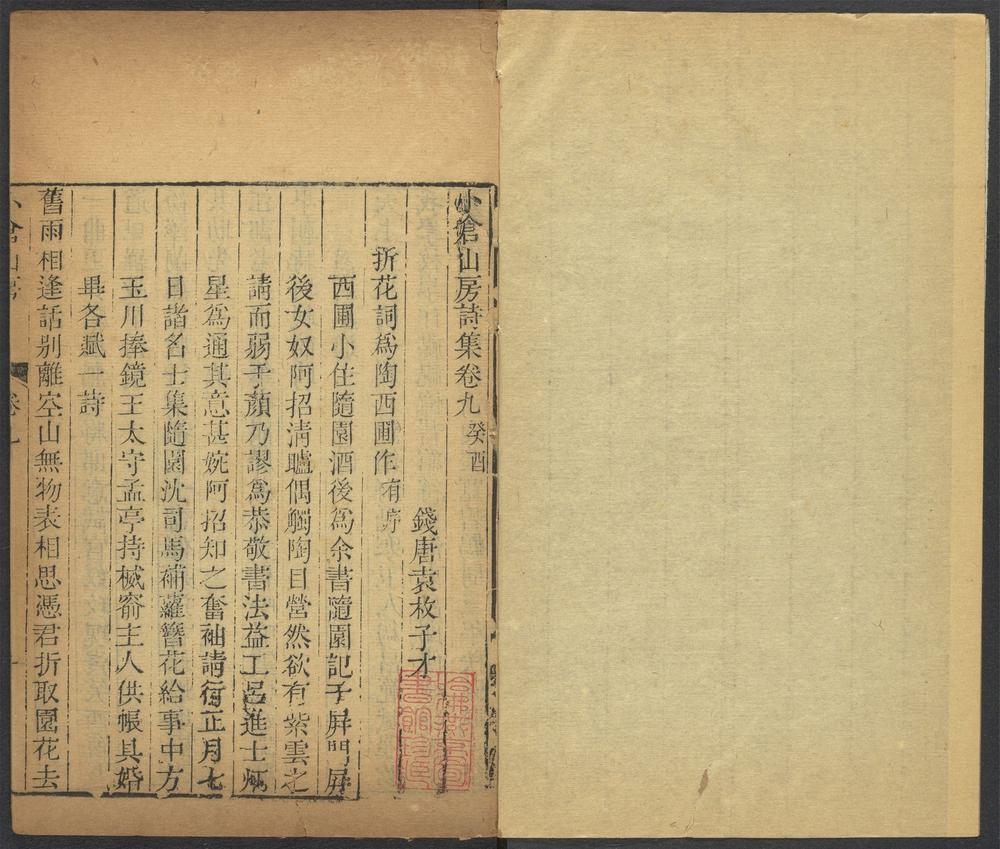 小倉山房詩集卷九 癸酉
錢唐袁枚子才
折花詞爲陶西圃作 有序
西圃小住隨園酒後爲余書隨園記于屏門屏
後女奴阿招清矑偶觸陶目營然欲有紫雲之
請而弱于顏乃謬爲恭敬書法益工呂進士炳
星爲通其意甚婉阿招知之奮袖請行正月七
日諸名士集隨園沈司馬補蘿簪花給事中方
玉川捧鏡王太守孟亭持檝窬主人供帳具婚
畢各賦一詩
舊雨相逢話别離空山無物表相思憑君折取園花去
小倉山房
卷九